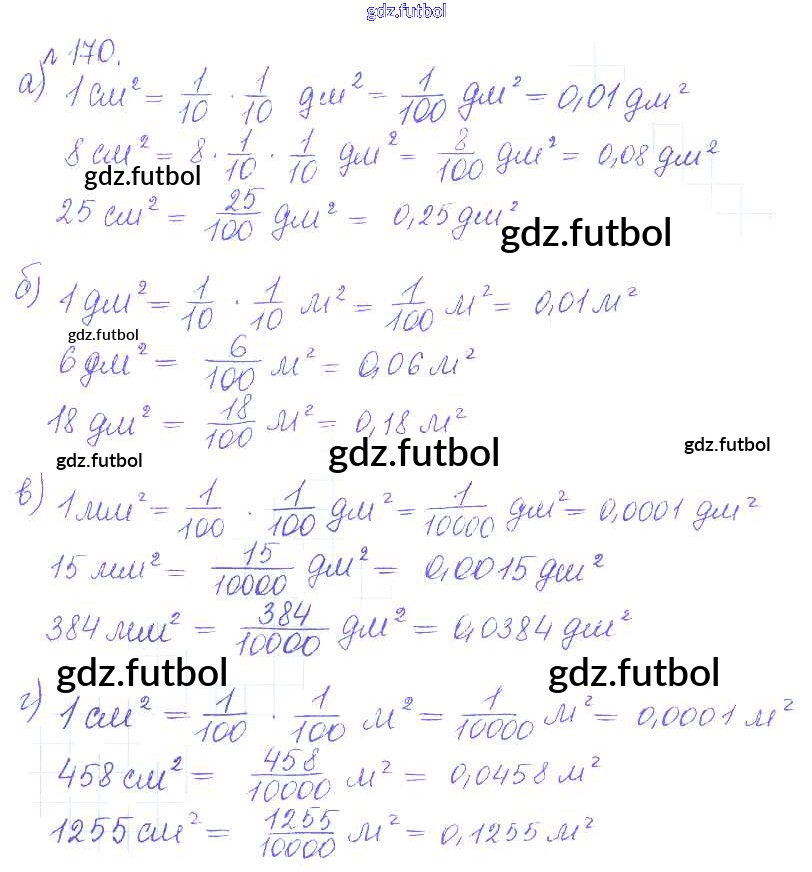 gdz.futbol
№ 170.
а) 1 см² = 1/10 · 1/10 дм² = 1/100 дм² = 0,01 дм²
8 см² = 8 · 1/10 · 1/10 дм² = 8/100 дм² = 0,08 дм²
gdz.futbol
25 см² = 25/100 дм² = 0,25 дм²
gdz.futbol
б) 1 дм² = 1/10 · 1/10 м² = 1/100 м² = 0,01 м²
gdz.futbol
6 дм² = 6/100 м² = 0,06 м²
18 дм² = 18/100 м² = 0,18 м²
gdz.futbol gdz.futbol gdz.futbol
в) 1 мм² = 1/100 · 1/100 дм² = 1/10000 дм² = 0,0001 дм²
15 мм² = 15/10000 дм² = 0,0015 дм²
384 мм² = 384/10000 дм² = 0,0384 дм²
gdz.futbol gdz.futbol
г) 1 см² = 1/100 · 1/100 м² = 1/10000 м² = 0,0001 м²
458 см² = 458/10000 м² = 0,0458 м²
1255 см² = 1255/10000 м² = 0,1255 м²